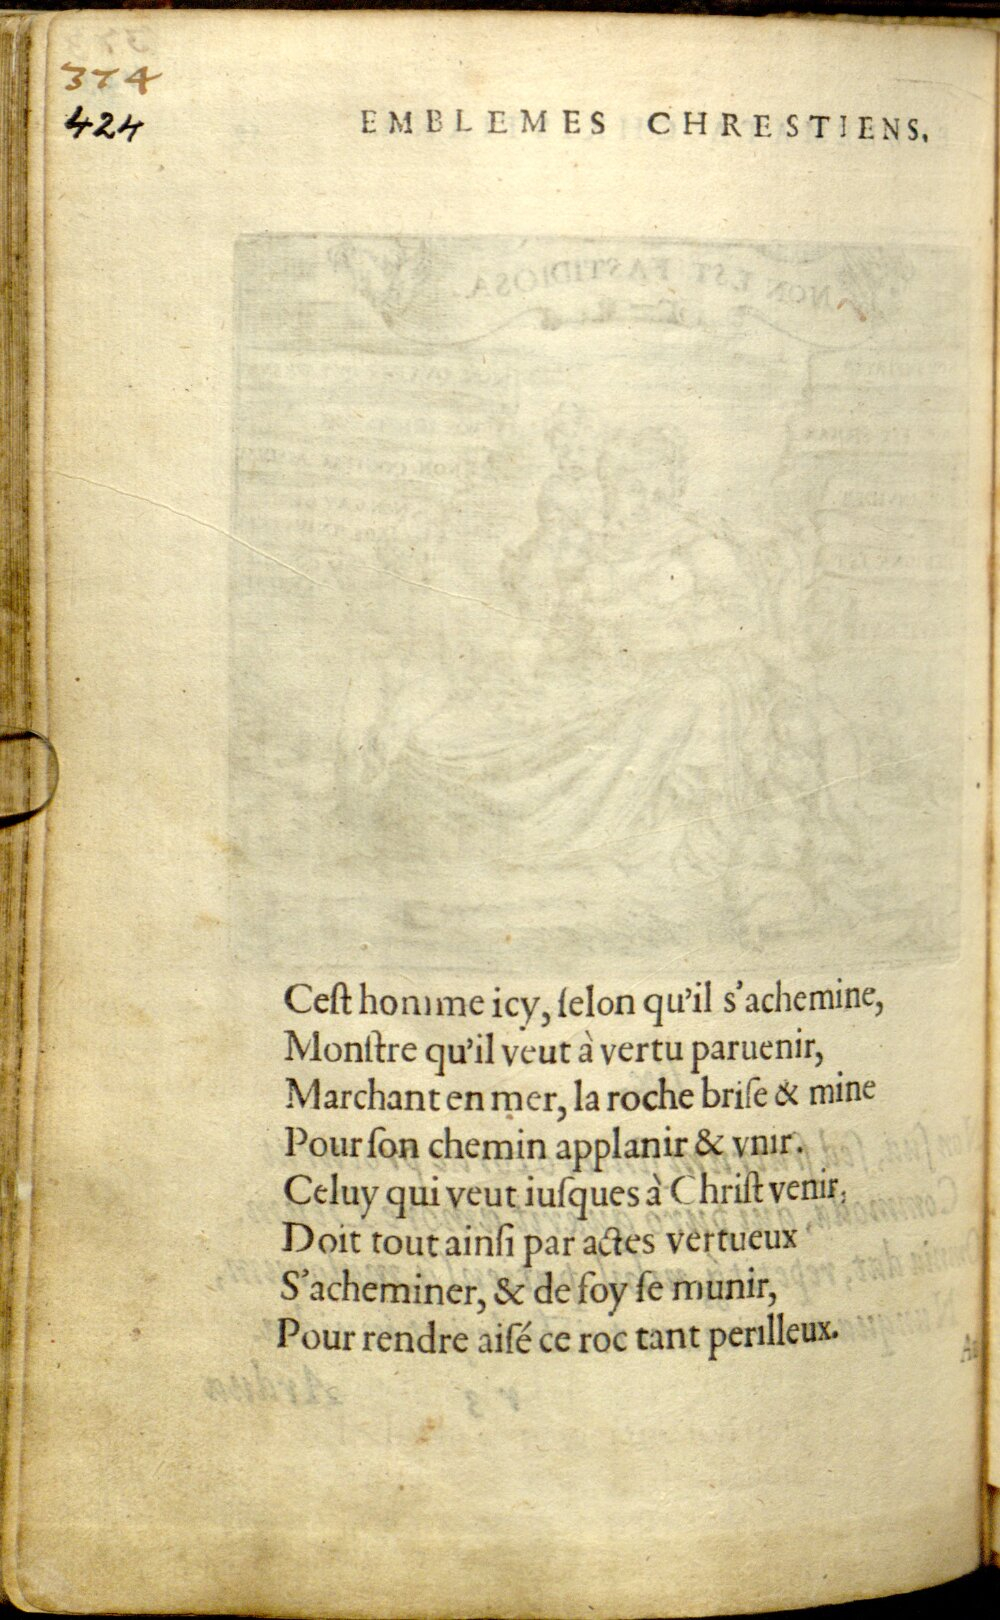 374
424
EMBLEMES CHRESTIENS.
NON EST FASTIDIOSA.
Ceſt homme icy, ſelon qu'il s'achemine,
Monſtre qu'il veut à vertu paruenir,
Marchant en mer, la roche briſe & mine
Pour ſon chemin applanir & vnir.
Celuy qui veut iuſques à Chriſt venir,
Doit tout ainſi par actes vertueux
S'acheminer, & de foy ſe munir,
Pour rendre aiſé ce roc tant perilleux.
Ardua